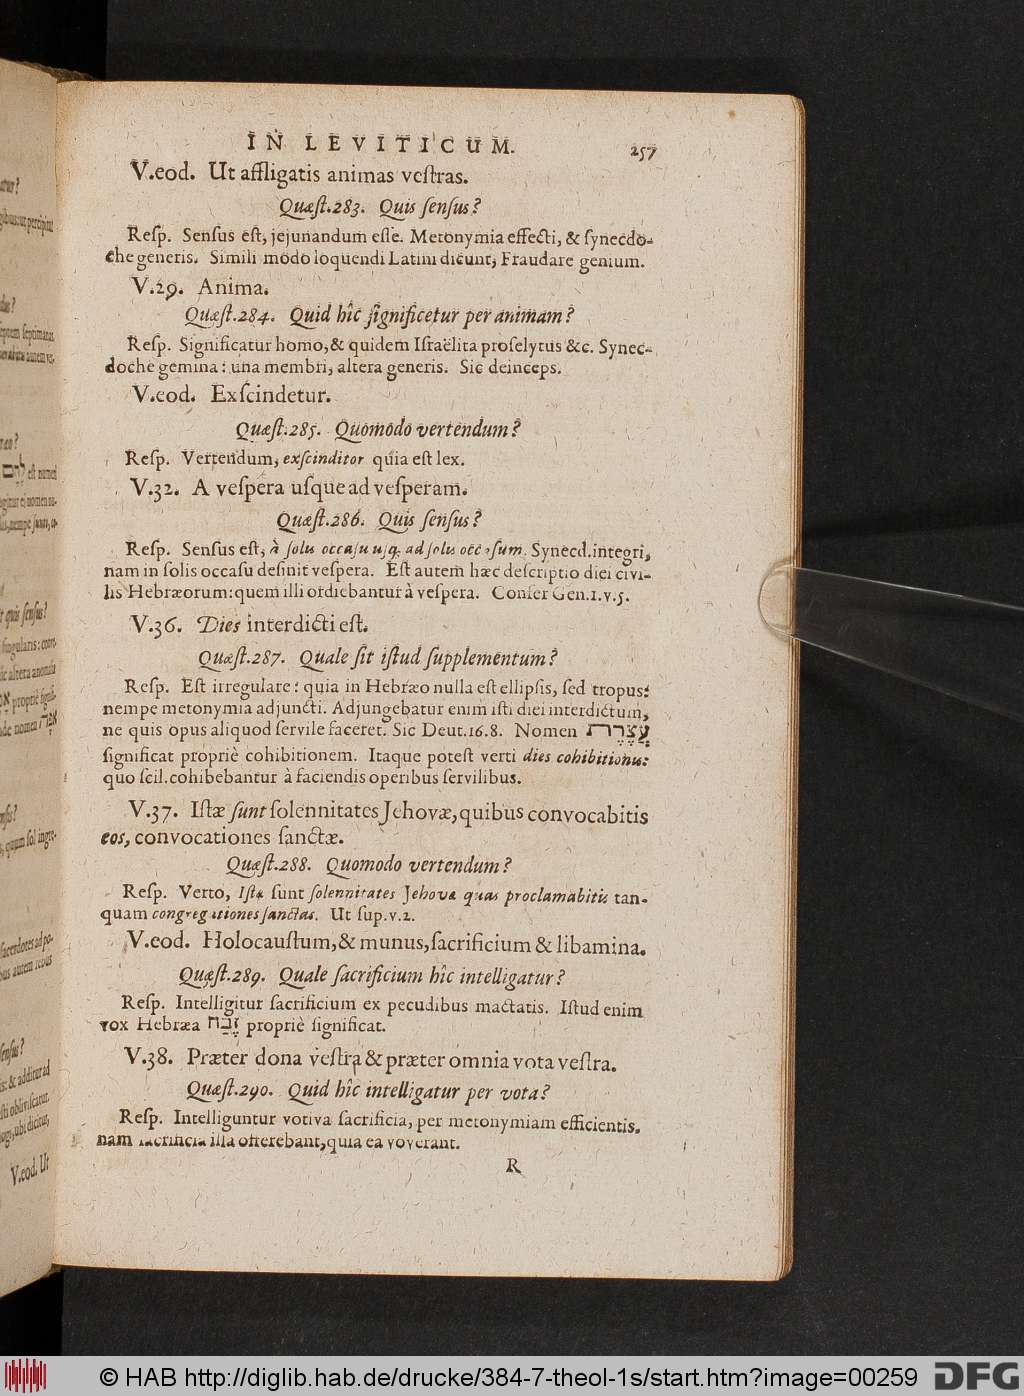 IN LEVITICUM. 257
V.eod. Ut affligatis animas veſtras.
Quæſt.283. Quis ſenſus?
Reſp. Senſus eſt, jejunandum eſſe. Metonymia effecti, & ſynecdo-
che generis. Simili modo loquendi Latini dicunt, Fraudare genium.
V.29. Anima.
Quæſt.284. Quid hîc ſignificetur per animam?
Reſp. Significatur homo, & quidem Iſraëlita proſelytus &c. Synec-
doche gemina: una membri, altera generis. Sic deinceps.
V.eod. Exſcindetur.
Quæſt.285. Quomodo vertendum?
Reſp. Vertendum, exſcinditor quia eſt lex.
V.32. A veſpera uſque ad veſperam.
Quæſt.286. Quis ſenſus?
Reſp. Senſus eſt, à ſolis occaſu uſq; ad ſolis occaſum. Synecd. integri,
nam in ſolis occaſu deſinit veſpera. Eſt autem hæc deſcriptio diei civi-
lis Hebræorum: quem illi ordiebantur à veſpera. Confer Gen.1.v.5.
V.36. Dies interdicti eſt.
Quæſt.287. Quale ſit iſtud ſupplementum?
Reſp. Eſt irregulare: quia in Hebræo nulla eſt ellipſis, ſed tropus:
nempe metonymia adjuncti. Adjungebatur enim iſti diei interdictum,
ne quis opus aliquod ſervile faceret. Sic Deut.16.8. Nomen עֲצֶרֶת
ſignificat propriè cohibitionem. Itaque poteſt verti dies cohibitionis:
quo ſcil. cohibebantur à faciendis operibus ſervilibus.
V.37. Iſtæ ſunt ſolennitates Jehovæ, quibus convocabitis
eos, convocationes ſanctæ.
Quæſt.288. Quomodo vertendum?
Reſp. Verto, Iſtæ ſunt ſolennitates Jehovæ quas proclamabitis tan-
quam congregationes ſanctas. Ut ſup.v.2.
V.eod. Holocauſtum, & munus, ſacrificium & libamina.
Quæſt.289. Quale ſacrificium hîc intelligatur?
Reſp. Intelligitur ſacrificium ex pecudibus mactatis. Iſtud enim
vox Hebræa זֶבַח propriè ſignificat.
V.38. Præter dona veſtra & præter omnia vota veſtra.
Quæſt.290. Quid hîc intelligatur per vota?
Reſp. Intelliguntur votiva ſacrificia, per metonymiam efficientis,
nam ſacrificia illa offerebant, quia ea voverant.
R
© HAB http://diglib.hab.de/drucke/384-7-theol-1s/start.htm?image=00259 DFG